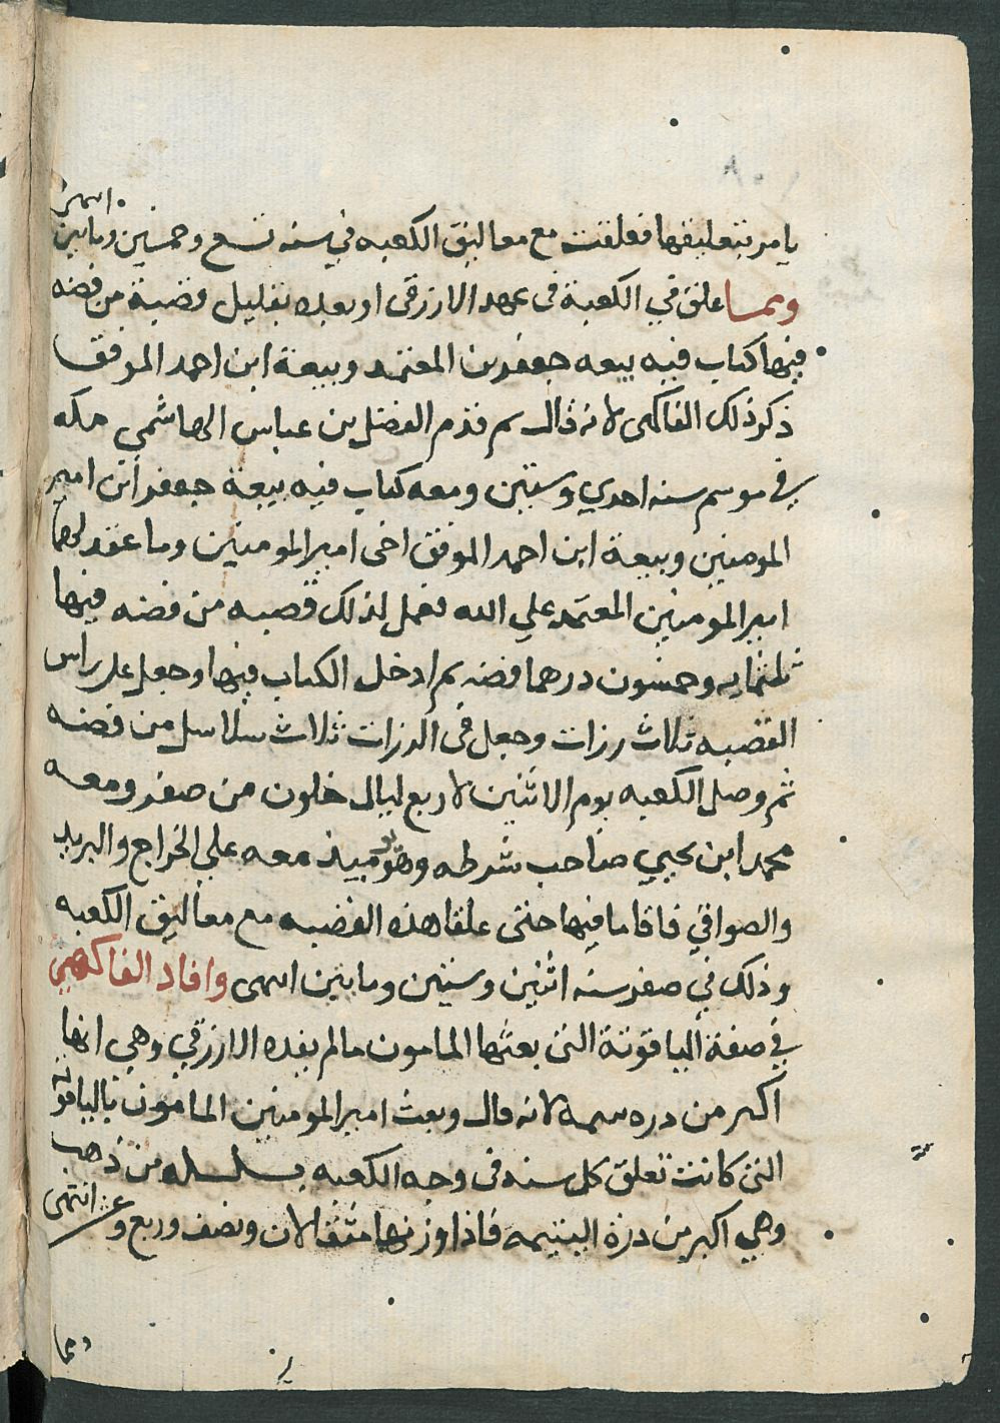 انتهى
يامر بتعليقها فعلقت مع معاليق الكعبه في سنه تسع وخمسين ومايتين
ومما علق في الكعبة فى عهد الازرقى او بعده بقليل قصبة من فضه
فيها كتاب فيه بيعه جعفر بن المعتمد وبيعة ابن احمد الموفق
ذكر ذلك الفاكهى لانه قال ثم قدم الفضل بن عباس الهاشمي مكه
في موسم سنه احدي وستين ومعه كتاب فيه بيعة جعفر ابن امير
المومنين وبيعة ابن احمد الموفق اخى امير المومنين وما عقد لهما
امير المومنين المعتمد علي الله فعمل لذلك قصبه من فضه فيها
ثلثمايه وخمسون درهما فضه ثم ادخل الكتاب فيها وجعل على راس
القصبه ثلاث رزات وجعل فى الرزات ثلاث سلاسل من فضه
ثم وصل الكعبه يوم الاثنين لاربع ليال خلون من صفر ومعه
محمد ابن يحيي صاحب شرطه وهو يوميذ معه علي الخراج والبريد
والصوافي فاقاما فيها حتى علقا هذه القصبه مع معاليق الكعبه
وذلك في صفر سنه اثنين وستين ومايتين انتهى وافاد الفاكهي
في صفة الياقوتة التى بعثها المامون مالم يفده الازرقي وهي انها
اكبر من دره لانه قال وبعث امير المومنين المامون بالياقوته
التى كانت تعلق كل سنه فى وجه الكعبه بسلسله من ذهب
وهي اكبر من درة اليتيمه فاذا وزنها مثقالان ونصف وربع و انتهى